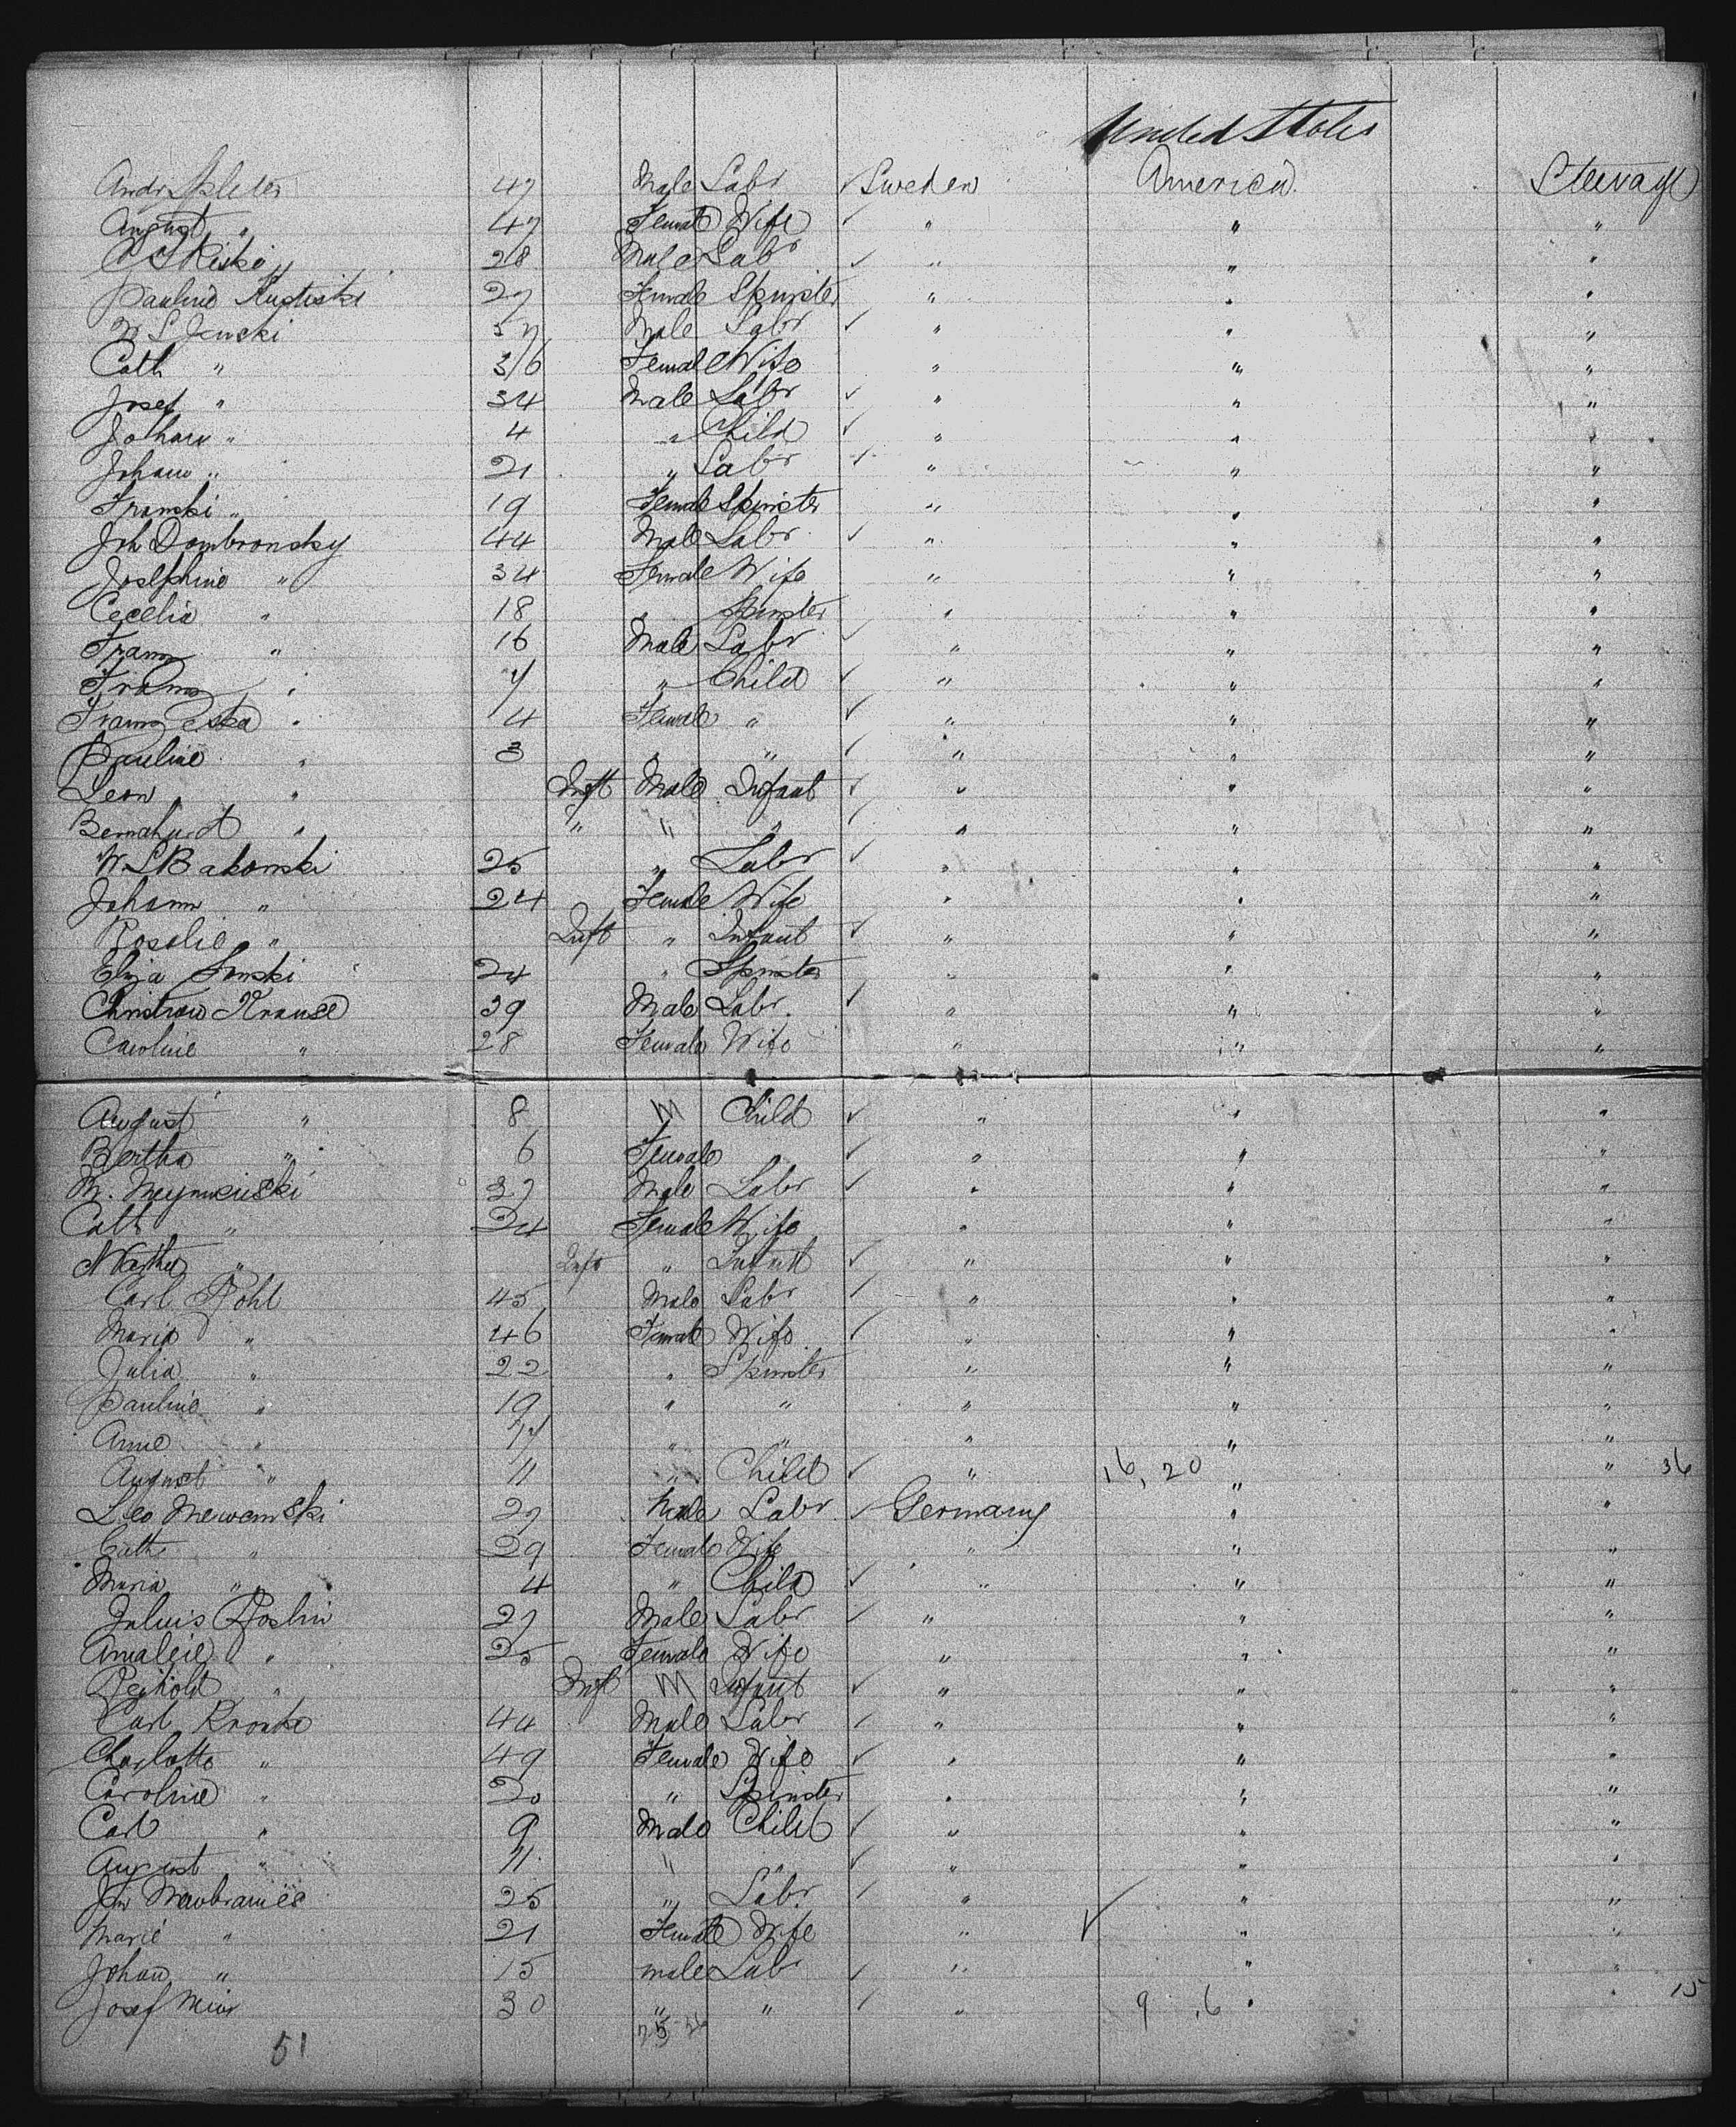 United States
Andr Spleter 47 Male Labr ✓ Sweden America Steerage
August " 47 Female Wife ✓ " " "
28 Male Labr ✓ " " "
Pauline 27 Female Spinster " " "
W S Jenski 57 Male Labr ✓ " " "
Cath " 36 Female Wife " " "
Josef " 34 Male Labr ✓ " " "
Johann " 4 " Child ✓ " " "
Johann " 21 " Labr ✓ " " "
Franski " 19 Female Spinster " " "
Joh Dombronsky 44 Male Labr ✓ " " "
Josephine " 34 Female Wife " " "
Cecelia " 18 " Spinster " " "
Franz " 16 Male Labr ✓ " " "
Franz " 7 " Child ✓ " " "
Franzeska " 4 Female " ✓ " " "
Pauline " 3 " " ✓ " " "
Leon " Inft Male Infant ✓ " " "
Bernahardt " " " " ✓ " " "
W S Bakomski 25 " Labr ✓ " " "
Johann " 24 Female Wife " " "
Rosalie " Inft " Infant ✓ " " "
Eliza 24 " Spinster " " "
Christian Krause 39 Male Labr. ✓ " " "
Caroline " 28 Female Wife " " "
August " 8 M Child ✓ " " "
Bertha " 6 Female ✓ " " "
37 Male Labr ✓ " " "
Cath " 24 Female Wife " " "
Martha " Inft " Infant ✓ " " "
Carl Pohl 45 Male Labr ✓ " " "
Maria " 46 Female Wife ✓ " " "
Julia " 22 " Spinster " " "
Pauline " 19 " " " " "
Anne " 17 " " " " "
August " 11 " Child ✓ " 16, 20 " " 36
Leo Mewemski 27 Male Labr ✓ Germany " "
Cath " 29 Female Wife " " "
Maria " 4 " Child ✓ " " "
Juluis 27 Male Labr ✓ " " "
Amaleie " 25 Female Wife " " "
Reihold " Inft M Infant ✓ " " "
Carl Kronke 44 Male Labr ✓ " " "
Charlotte " 49 Female Wife ✓ " " "
Caroline " 20 " Spinster " " "
Carl " 9 Male Child ✓ " " "
August " 11 " " ✓ " " "
25 " Labr ✓ " " "
Marie " 21 Female Wife " ✓ " "
Johan " 15 male Labr ✓ " " "
Josef Meir 30 " " ✓ " 9 6 " " 15
51